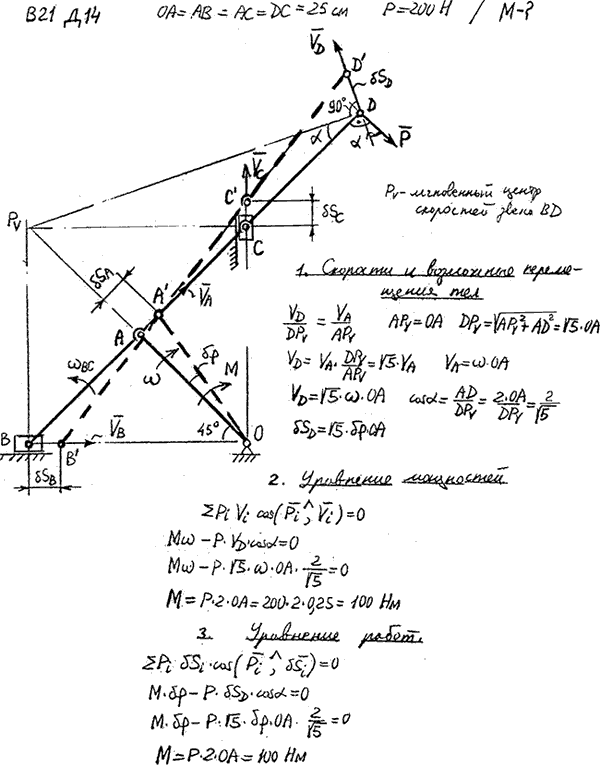 В21 Д14 OA = AB = AC = DC = 25 см P = 200 Н / М-?
V̄_D
D'
δS_D
90°
D
α
α
P̄
V̄_C
C'
δS_C
C
P_V
P_V - мгновенный центр
скоростей звена BD
δS_A
A'
V̄_A
A
ω_BC
ω
δφ
M
B
B'
V̄_B
45°
O
δS_B
1. Скорости и возможные переме-
щения тел
V_D/AP_V = V_A/AP_V AP_V = OA DP_V = √(AP_V² + AD²) = √5·OA
V_D = V_A · DP_V/AP_V = √5·V_A V_A = ω·OA
V_D = √5·ω·OA cosα = AD/DP_V = 2·OA/DP_V = 2/√5
δS_D = √5·δφ·OA
2. Уравнение мощностей
ΣP_i V_i cos(P̄_i ^, V̄_i) = 0
Mω − P·V_D·cosα = 0
Mω − P·√5·ω·OA · 2/√5 = 0
M = P·2·OA = 200·2·0,25 = 100 Нм
3. Уравнение работ.
ΣP_i δS_i·cos(P̄_i ^, δS̄_i) = 0
M·δφ − P·δS_D·cosα = 0
M·δφ − P·√5·δφ·OA · 2/√5 = 0
M = P·2·OA = 100 Нм